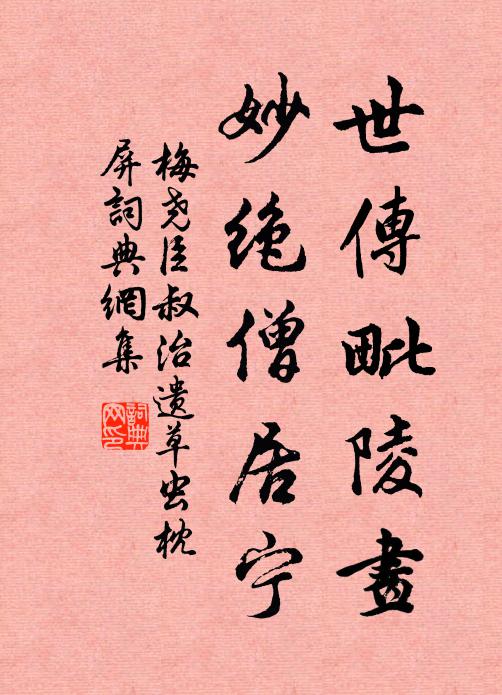 世傳毗陵畫
妙绝僧居宁
梅尧臣叔治遗草虫枕
屏詞典網集
詞典
网印